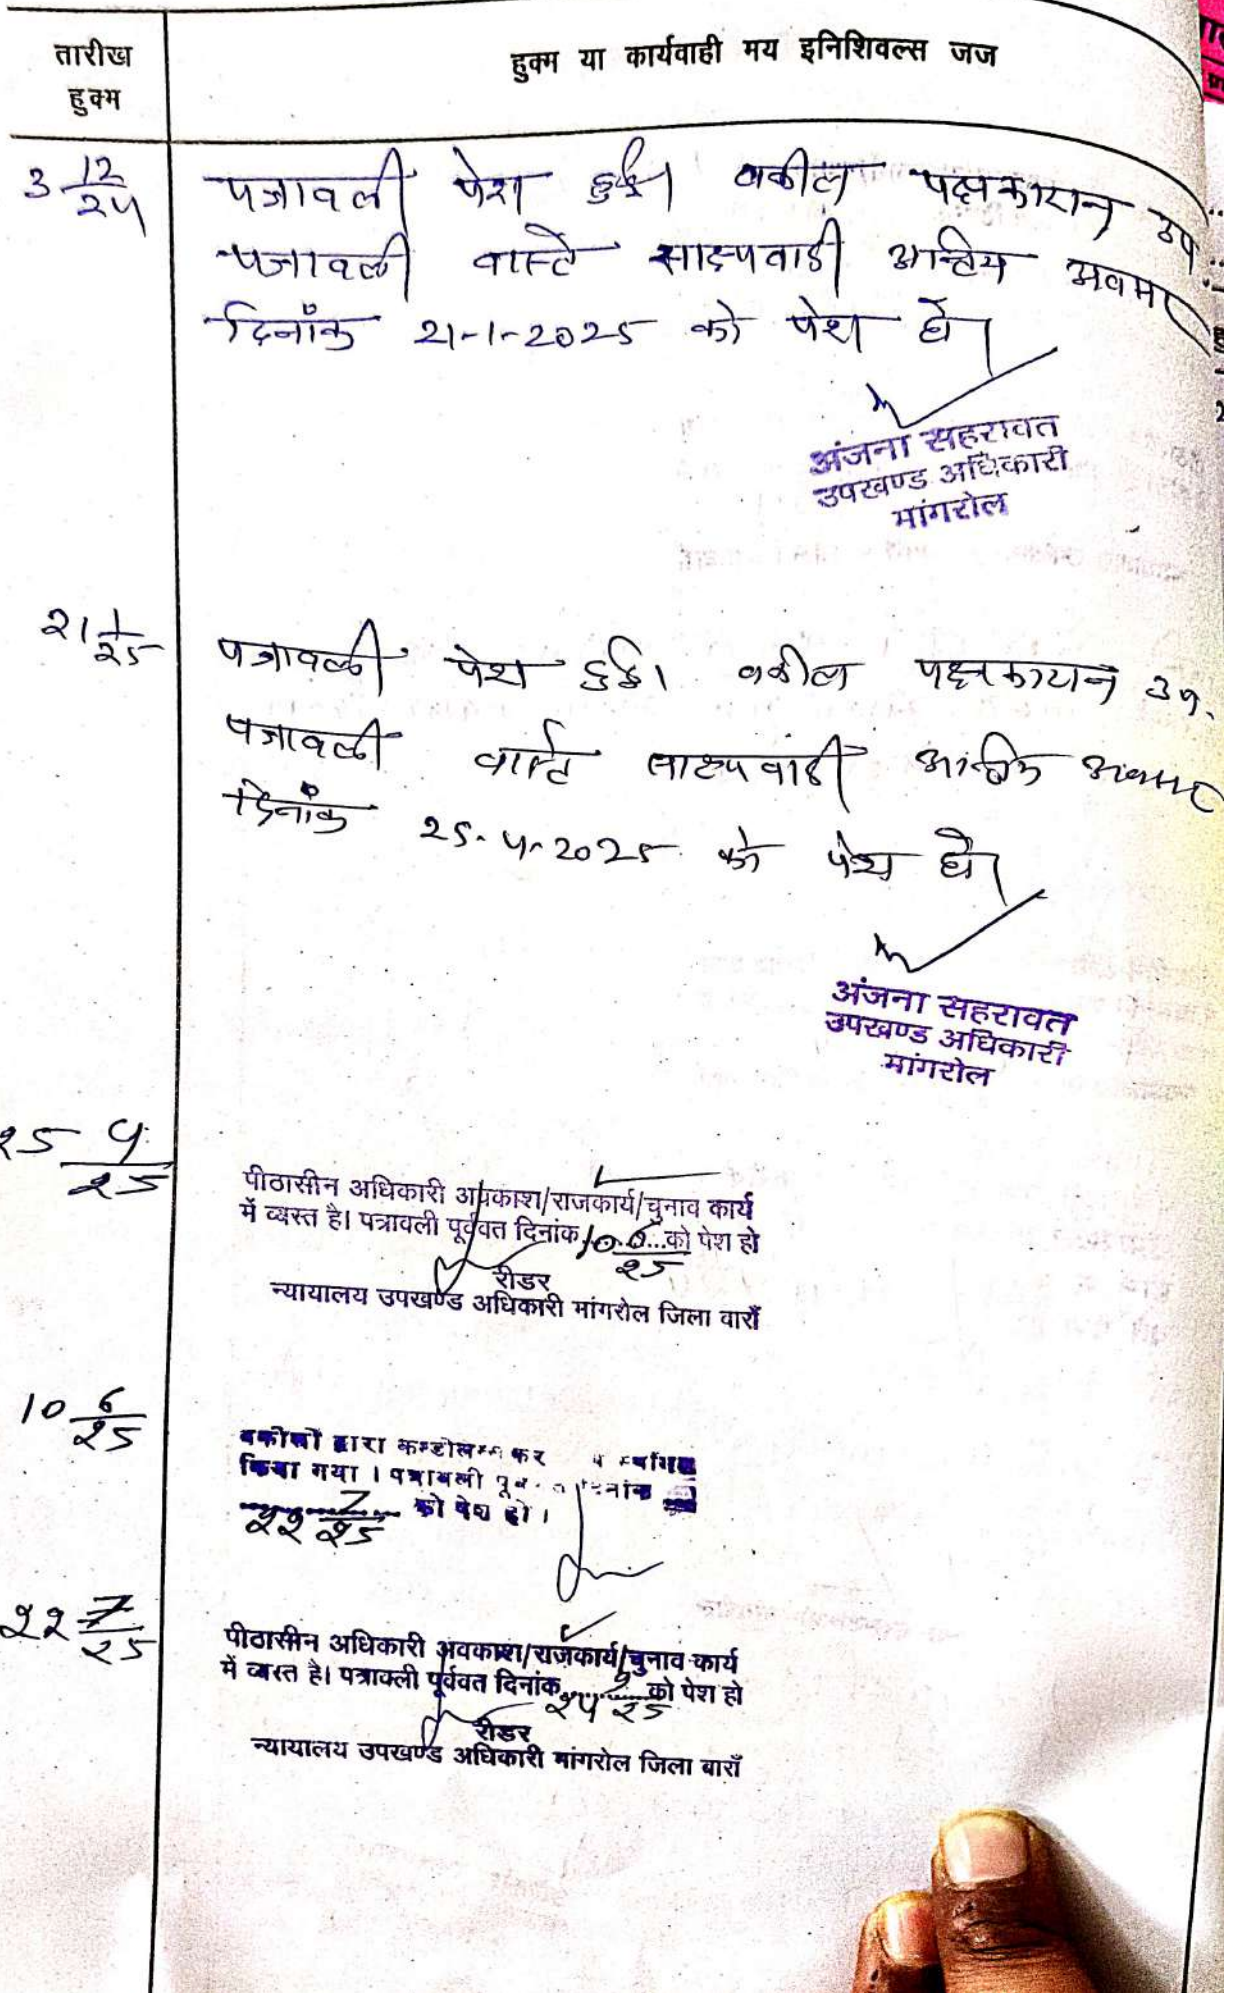 तारीख
हुक्म
हुक्म या कार्यवाही मय इनिशिवल्स जज
3 12/24
पत्रावली पेश हुई। वकील पक्षकारान् उप
पत्रावली वास्ते साक्ष्यवादी अन्तिम अवसर
दिनाँक 21-1-2025 को पेश हो।
अंजना सहरावत
उपखण्ड अधिकारी
मांगरोल
21 1/25
पत्रावली पेश हुई। वकील पक्षकारान उप.
पत्रावली वास्ते साक्ष्यवादी अन्तिम अवसर
दिनाँक 25-4-2025 को पेश हो।
अंजना सहरावत
उपखण्ड अधिकारी
मांगरोल
25 4/25
पीठासीन अधिकारी अवकाश/राजकार्य/चुनाव कार्य
में व्यस्त है। पत्रावली पूर्ववत दिनांक 10 6/25 को पेश हो
रीडर
न्यायालय उपखण्ड अधिकारी मांगरोल जिला बाराँ
10 6/25
वकीलों द्वारा कन्डोलेन्स कर
किया गया । पत्रावली दिनांक
22 7/25 को पेश हो ।
22 7/25
पीठासीन अधिकारी अवकाश/राजकार्य/चुनाव कार्य
में व्यस्त है। पत्रावली पूर्ववत दिनांक 24 9/25 को पेश हो
रीडर
न्यायालय उपखण्ड अधिकारी मांगरोल जिला बाराँ